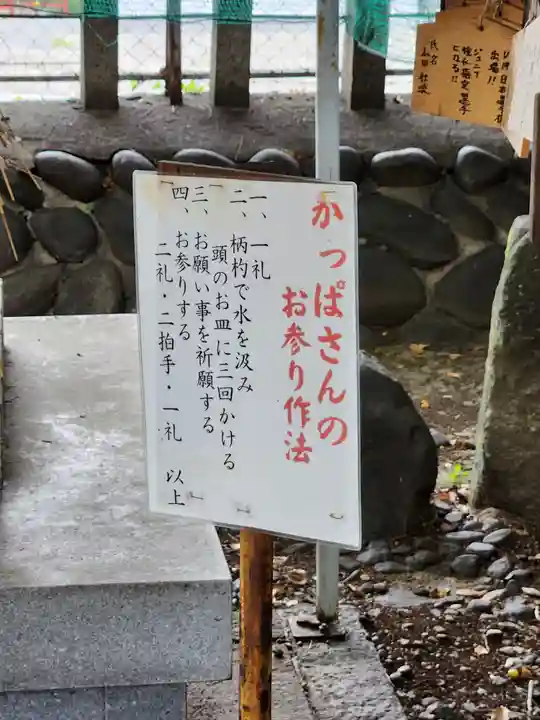 かっぱさんの
お参り作法
一、一礼
二、柄杓で水を汲み
頭のお皿に三回かける
三、お願い事を祈願する
四、お参りする
二礼・二拍手・一礼 以上
出場!!
ジュニア
になる!!
氏名